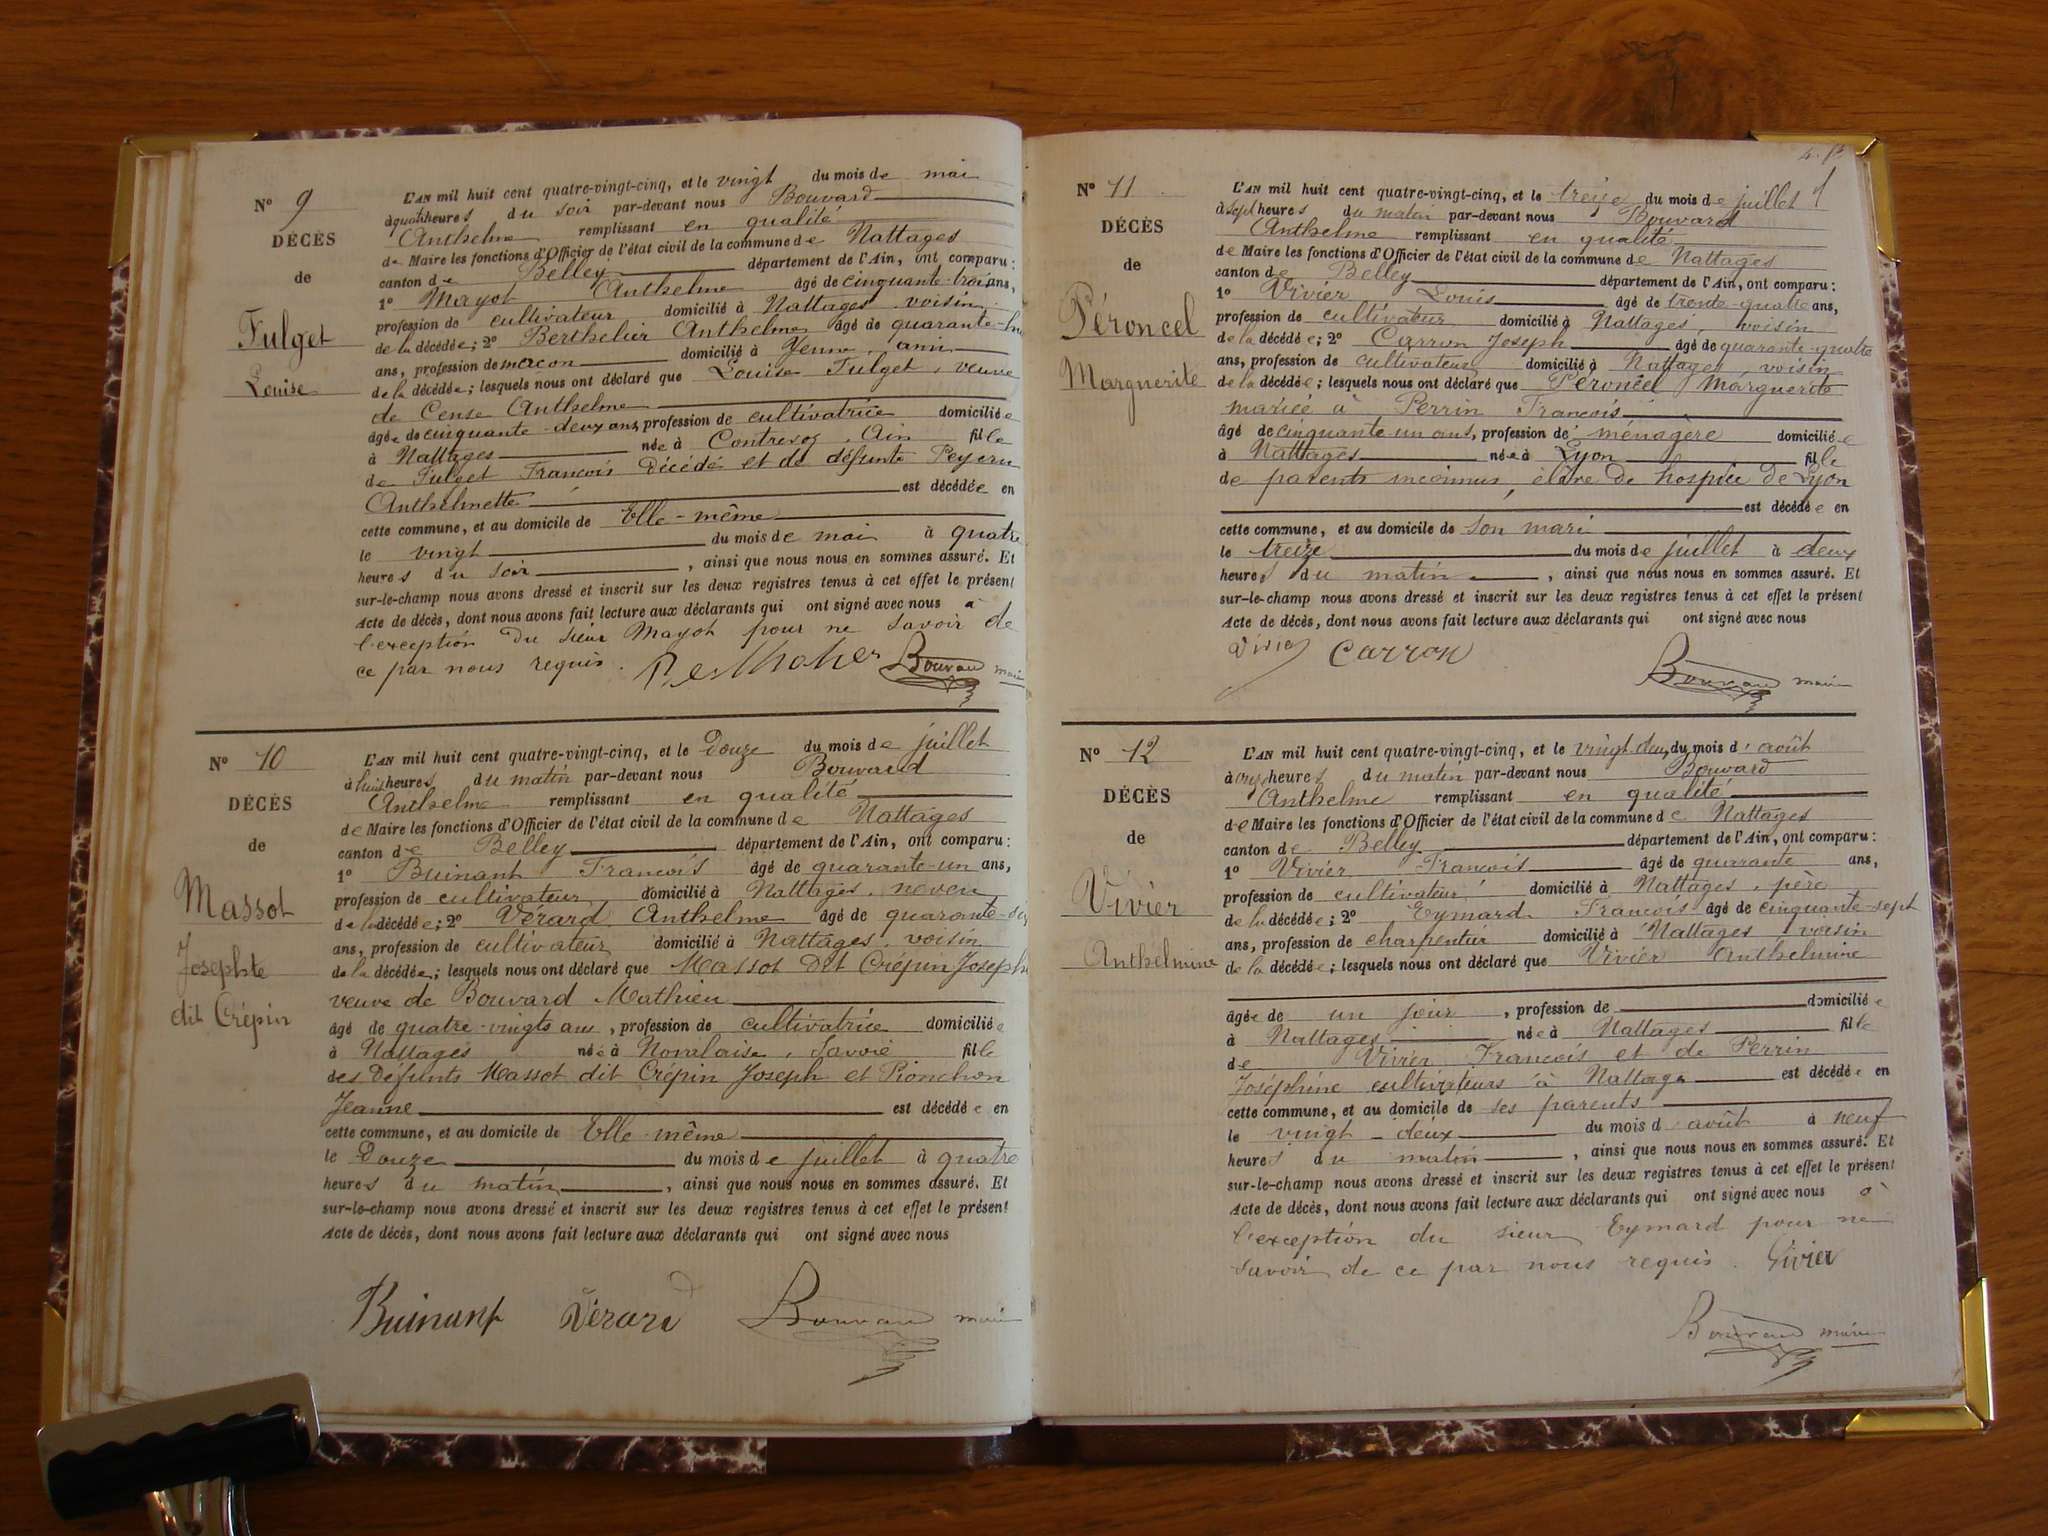 N° 9
DÉCÈS
de
Fulget
Louise
L'AN mil huit cent quatre-vingt-cinq, et le vingt du mois de mai
à quatre heures du soir par-devant nous Bouvard
Anthelme remplissant en qualité
de Maire les fonctions d'Officier de l'état civil de la commune de Nattages
canton de Belley département de l'Ain, ont comparu :
1° Mayot Anthelme âgé de cinquante-trois ans,
profession de cultivateur domicilié à Nattages, voisin
de la décédée; 2° Berthelier Anthelme âgé de quarante-hu
ans, profession de maçon domicilié à Yenne, ami
de la décédée; lesquels nous ont déclaré que Louise Fulget, veuve
de Cense Anthelme
âgée de cinquante-deux ans, profession de cultivatrice domiciliée
à Nattages née à Contrevoz, Ain fille
de Fulget François décédé et de défunte Peyeru
Anthelmette est décédée en
cette commune, et au domicile de Elle-même
le vingt du mois de mai à quatre
heures du soir, ainsi que nous nous en sommes assuré. Et
sur-le-champ nous avons dressé et inscrit sur les deux registres tenus à cet effet le présent
Acte de décès, dont nous avons fait lecture aux déclarants qui ont signé avec nous à
l'exception du sieur Mayot pour ne savoir de
ce par nous requis. Berthelier Bouvard maire
N° 10
DÉCÈS
de
Massot
Josephte
dit Crépin
L'AN mil huit cent quatre-vingt-cinq, et le Douze du mois de juillet
à huit heures du matin par-devant nous Bouvard
Anthelme remplissant en qualité
de Maire les fonctions d'Officier de l'état civil de la commune de Nattages
canton de Belley département de l'Ain, ont comparu :
1° Buinant François âgé de quarante-un ans,
profession de cultivateur domicilié à Nattages, neveu
de la décédée; 2° Vérard Anthelme âgé de quarante-six
ans, profession de cultivateur domicilié à Nattages, voisin
de la décédée; lesquels nous ont déclaré que Massot dit Crépin Joseph
veuve de Bouvard Mathieu
âgé de quatre-vingts ans, profession de cultivatrice domiciliée
à Nattages née à Novalaise, Savoie fille
des Défunts Massot dit Crépin Joseph et Pionchon
Jeanne est décédée en
cette commune, et au domicile de Elle-même
le Douze du mois de juillet à quatre
heures du matin, ainsi que nous nous en sommes assuré. Et
sur-le-champ nous avons dressé et inscrit sur les deux registres tenus à cet effet le présent
Acte de décès, dont nous avons fait lecture aux déclarants qui ont signé avec nous
Buinant Vérard Bouvard maire
N° 11
DÉCÈS
de
Péroncel
Marguerite
L'AN mil huit cent quatre-vingt-cinq, et le treize du mois de juillet
à sept heures du matin par-devant nous Bouvard
Anthelme remplissant en qualité
de Maire les fonctions d'Officier de l'état civil de la commune de Nattages
canton de Belley département de l'Ain, ont comparu :
1° Vivier Louis âgé de trente-quatre ans,
profession de cultivateur domicilié à Nattages, voisin
de la décédée; 2° Carron Joseph âgé de quarante-quatre
ans, profession de cultivateur domicilié à Nattages, voisin
de la décédée; lesquels nous ont déclaré que Péroncel Marguerite
mariée à Perrin François
âgé de cinquante-un ans, profession de ménagère domiciliée
à Nattages née à Lyon fille
de parents inconnus, élève de hospice de Lyon
est décédée en
cette commune, et au domicile de son mari
le treize du mois de juillet à deux
heures du matin, ainsi que nous nous en sommes assuré. Et
sur-le-champ nous avons dressé et inscrit sur les deux registres tenus à cet effet le présent
Acte de décès, dont nous avons fait lecture aux déclarants qui ont signé avec nous
Vivier Carron
Bouvard maire
N° 12
DÉCÈS
de
Vivier
Anthelmine
L'AN mil huit cent quatre-vingt-cinq, et le vingt-deux du mois d'août
à onze heures du matin par-devant nous Bouvard
Anthelme remplissant en qualité
de Maire les fonctions d'Officier de l'état civil de la commune de Nattages
canton de Belley département de l'Ain, ont comparu :
1° Vivier François âgé de quarante ans,
profession de cultivateur domicilié à Nattages, père
de la décédée; 2° Eymard François âgé de cinquante-sept
ans, profession de charpentier domicilié à Nattages, voisin
de la décédée; lesquels nous ont déclaré que Vivier Anthelmine
âgée de un jour, profession de domiciliée
à Nattages née à Nattages fille
de Vivier François et de Perrin
Joséphine cultivateurs à Nattages est décédée en
cette commune, et au domicile de ses parents
le vingt-deux du mois d'août à neuf
heures du matin, ainsi que nous nous en sommes assuré. Et
sur-le-champ nous avons dressé et inscrit sur les deux registres tenus à cet effet le présent
Acte de décès, dont nous avons fait lecture aux déclarants qui ont signé avec nous à
l'exception du sieur Eymard pour ne
savoir de ce par nous requis. Vivier
Bouvard maire